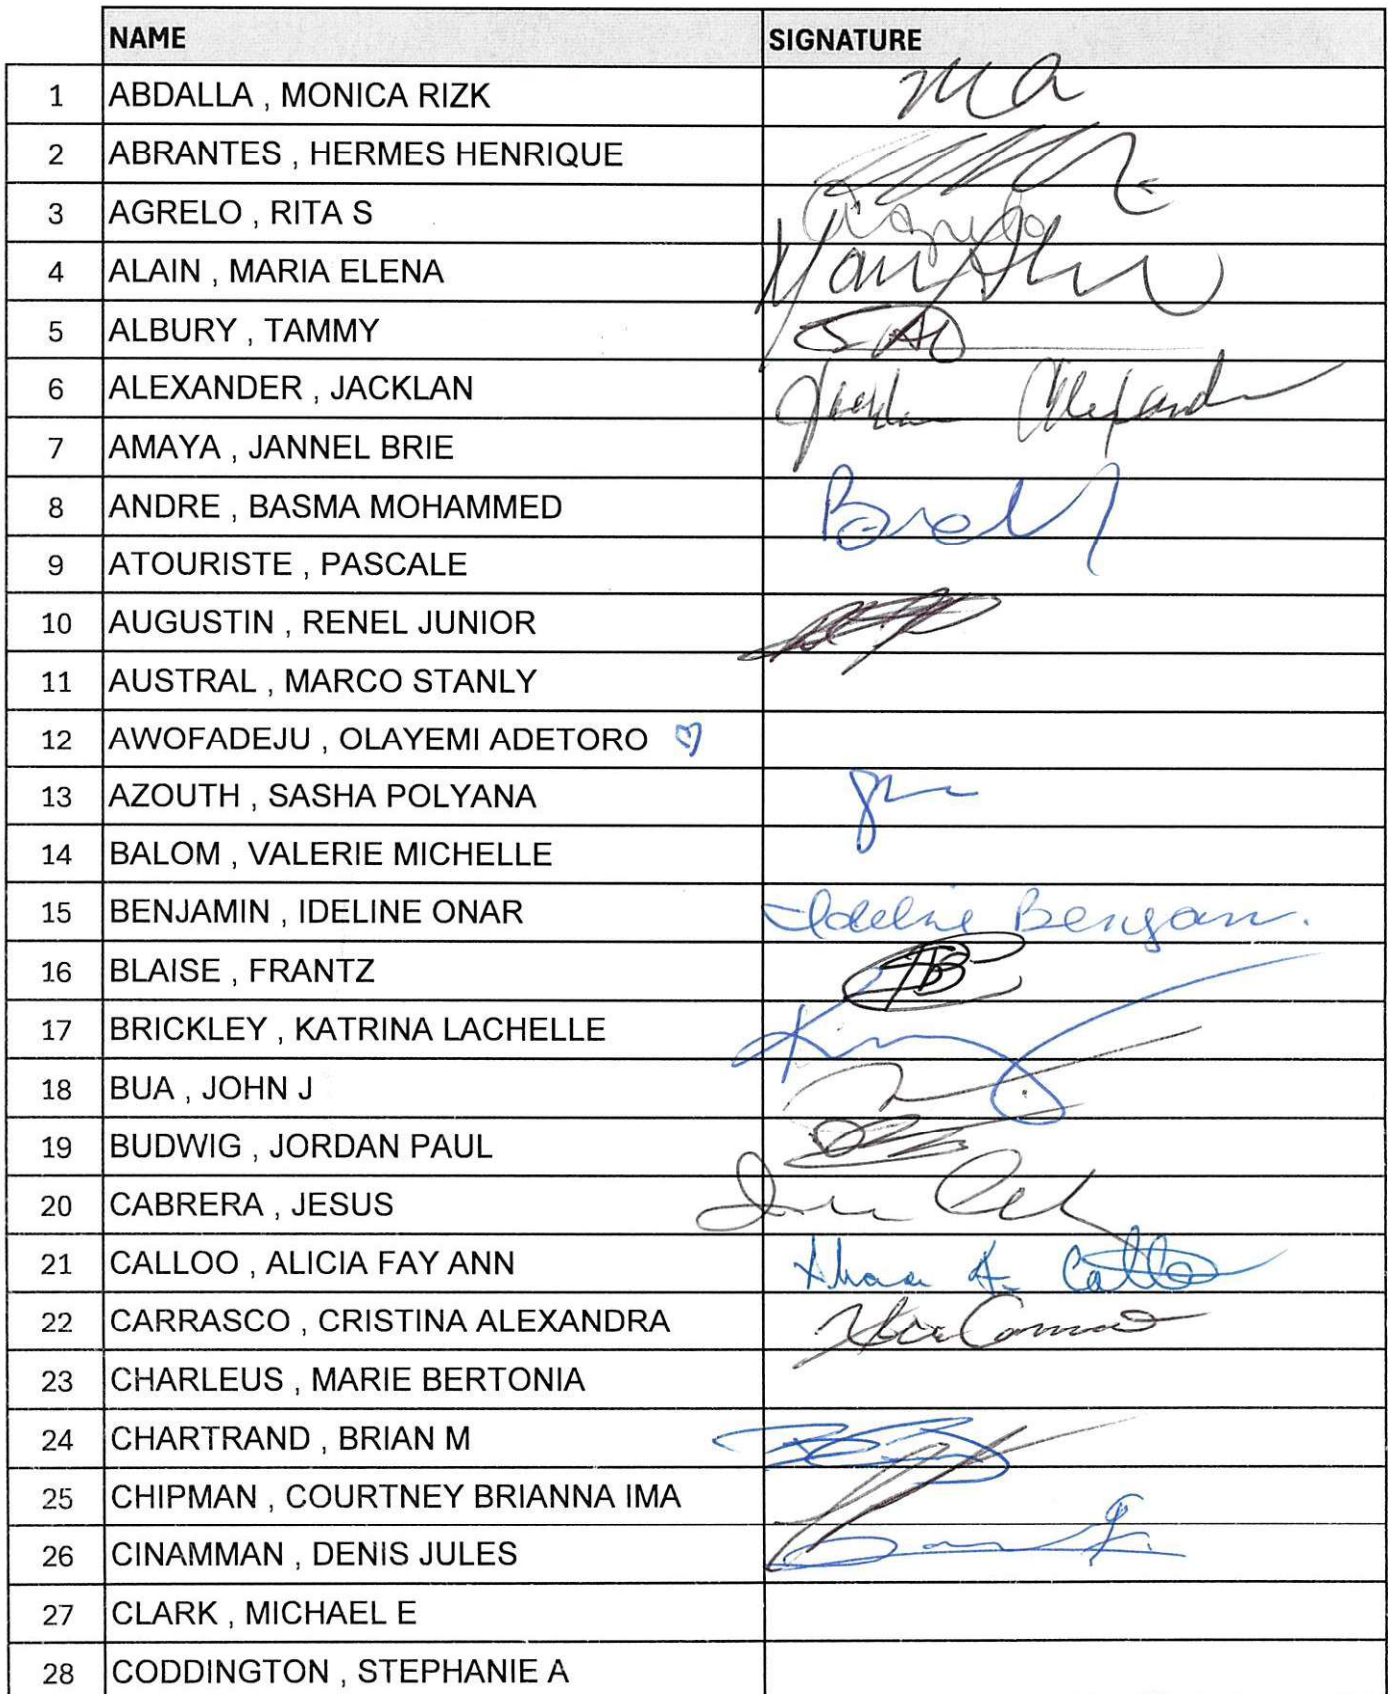 NAME SIGNATURE
1 ABDALLA , MONICA RIZK MA
2 ABRANTES , HERMES HENRIQUE
3 AGRELO , RITA S
4 ALAIN , MARIA ELENA
5 ALBURY , TAMMY
6 ALEXANDER , JACKLAN
7 AMAYA , JANNEL BRIE
8 ANDRE , BASMA MOHAMMED
9 ATOURISTE , PASCALE
10 AUGUSTIN , RENEL JUNIOR
11 AUSTRAL , MARCO STANLY
12 AWOFADEJU , OLAYEMI ADETORO
13 AZOUTH , SASHA POLYANA
14 BALOM , VALERIE MICHELLE
15 BENJAMIN , IDELINE ONAR
16 BLAISE , FRANTZ
17 BRICKLEY , KATRINA LACHELLE
18 BUA , JOHN J
19 BUDWIG , JORDAN PAUL
20 CABRERA , JESUS
21 CALLOO , ALICIA FAY ANN
22 CARRASCO , CRISTINA ALEXANDRA
23 CHARLEUS , MARIE BERTONIA
24 CHARTRAND , BRIAN M
25 CHIPMAN , COURTNEY BRIANNA IMA
26 CINAMMAN , DENIS JULES
27 CLARK , MICHAEL E
28 CODDINGTON , STEPHANIE A